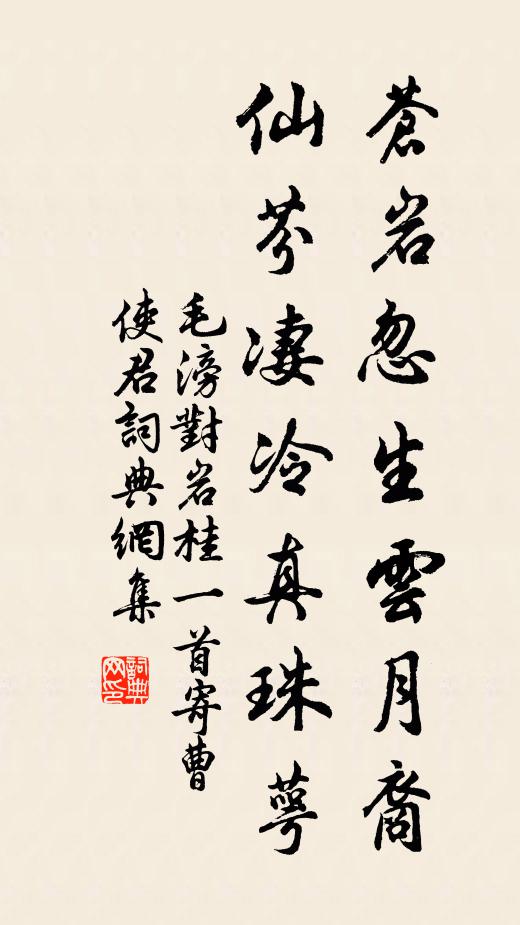 蒼岩忽生雲月裔
仙芬凄冷真珠萼
毛滂對岩桂一首寄曹
使君詞典網集
詞典网印